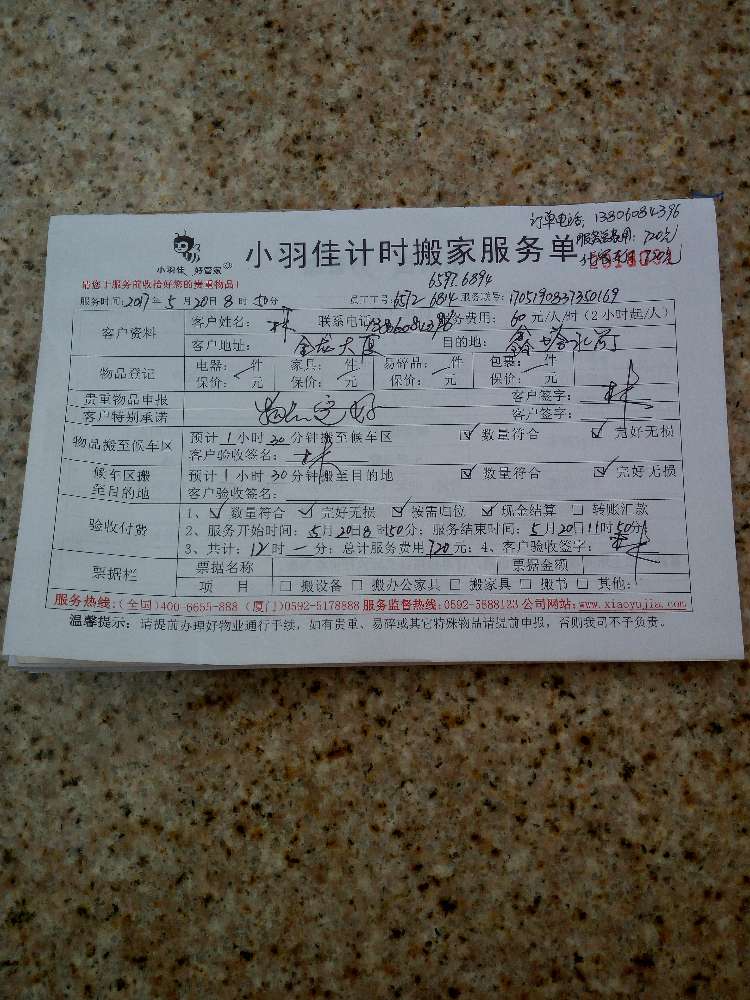 订单电话：13306084396
小羽佳 好管家
小羽佳计时搬家服务单
服务总费用：720元
720元
请您于服务前收拾好您的贵重物品！
6597.6894
服务时间：2017年5月20日8时50分 员工工号：6572 6814 服务编号：1705190837350169
客户资料
客户姓名：林 联系电话 计费费用：60元/人/时（2小时起/人）
客户地址：金龙大厦 目的地：
物品登记
电器： 件 家具： 件 易碎品： 件 包裹： 件
保价： 元 保价： 元 保价： 元 保价： 元
贵重物品申报 客户签字：林
客户特别承诺 客户签字：
物品搬至候车区
预计1小时30分钟搬至候车区 ☑数量符合 ☑完好无损
客户验收签名：林
候车区搬至目的地
预计1小时30分钟搬至目的地 ☑数量符合 ☑完好无损
客户验收签名：
验收付费
1、☑数量符合 ☑完好无损 ☑按需归位 ☑现金结算 □转账汇款
2、服务开始时间：5月20日8时50分；服务结束时间：5月20日11时50分
3、共计：12时一分；总计服务费用720元；4、客户验收签字：林
票据栏
票据名称 票据金额
项 目 □搬设备 □搬办公家具 □搬家具 □搬书 □其他：
服务热线：（全国）400-6655-888（厦门）0592-5178888 服务监督热线：0592-5688123 公司网站：www.xiaoyujia.com
温馨提示：请提前办理好物业通行手续，如有贵重、易碎或其它特殊物品请提前申报，否则我司不予负责。